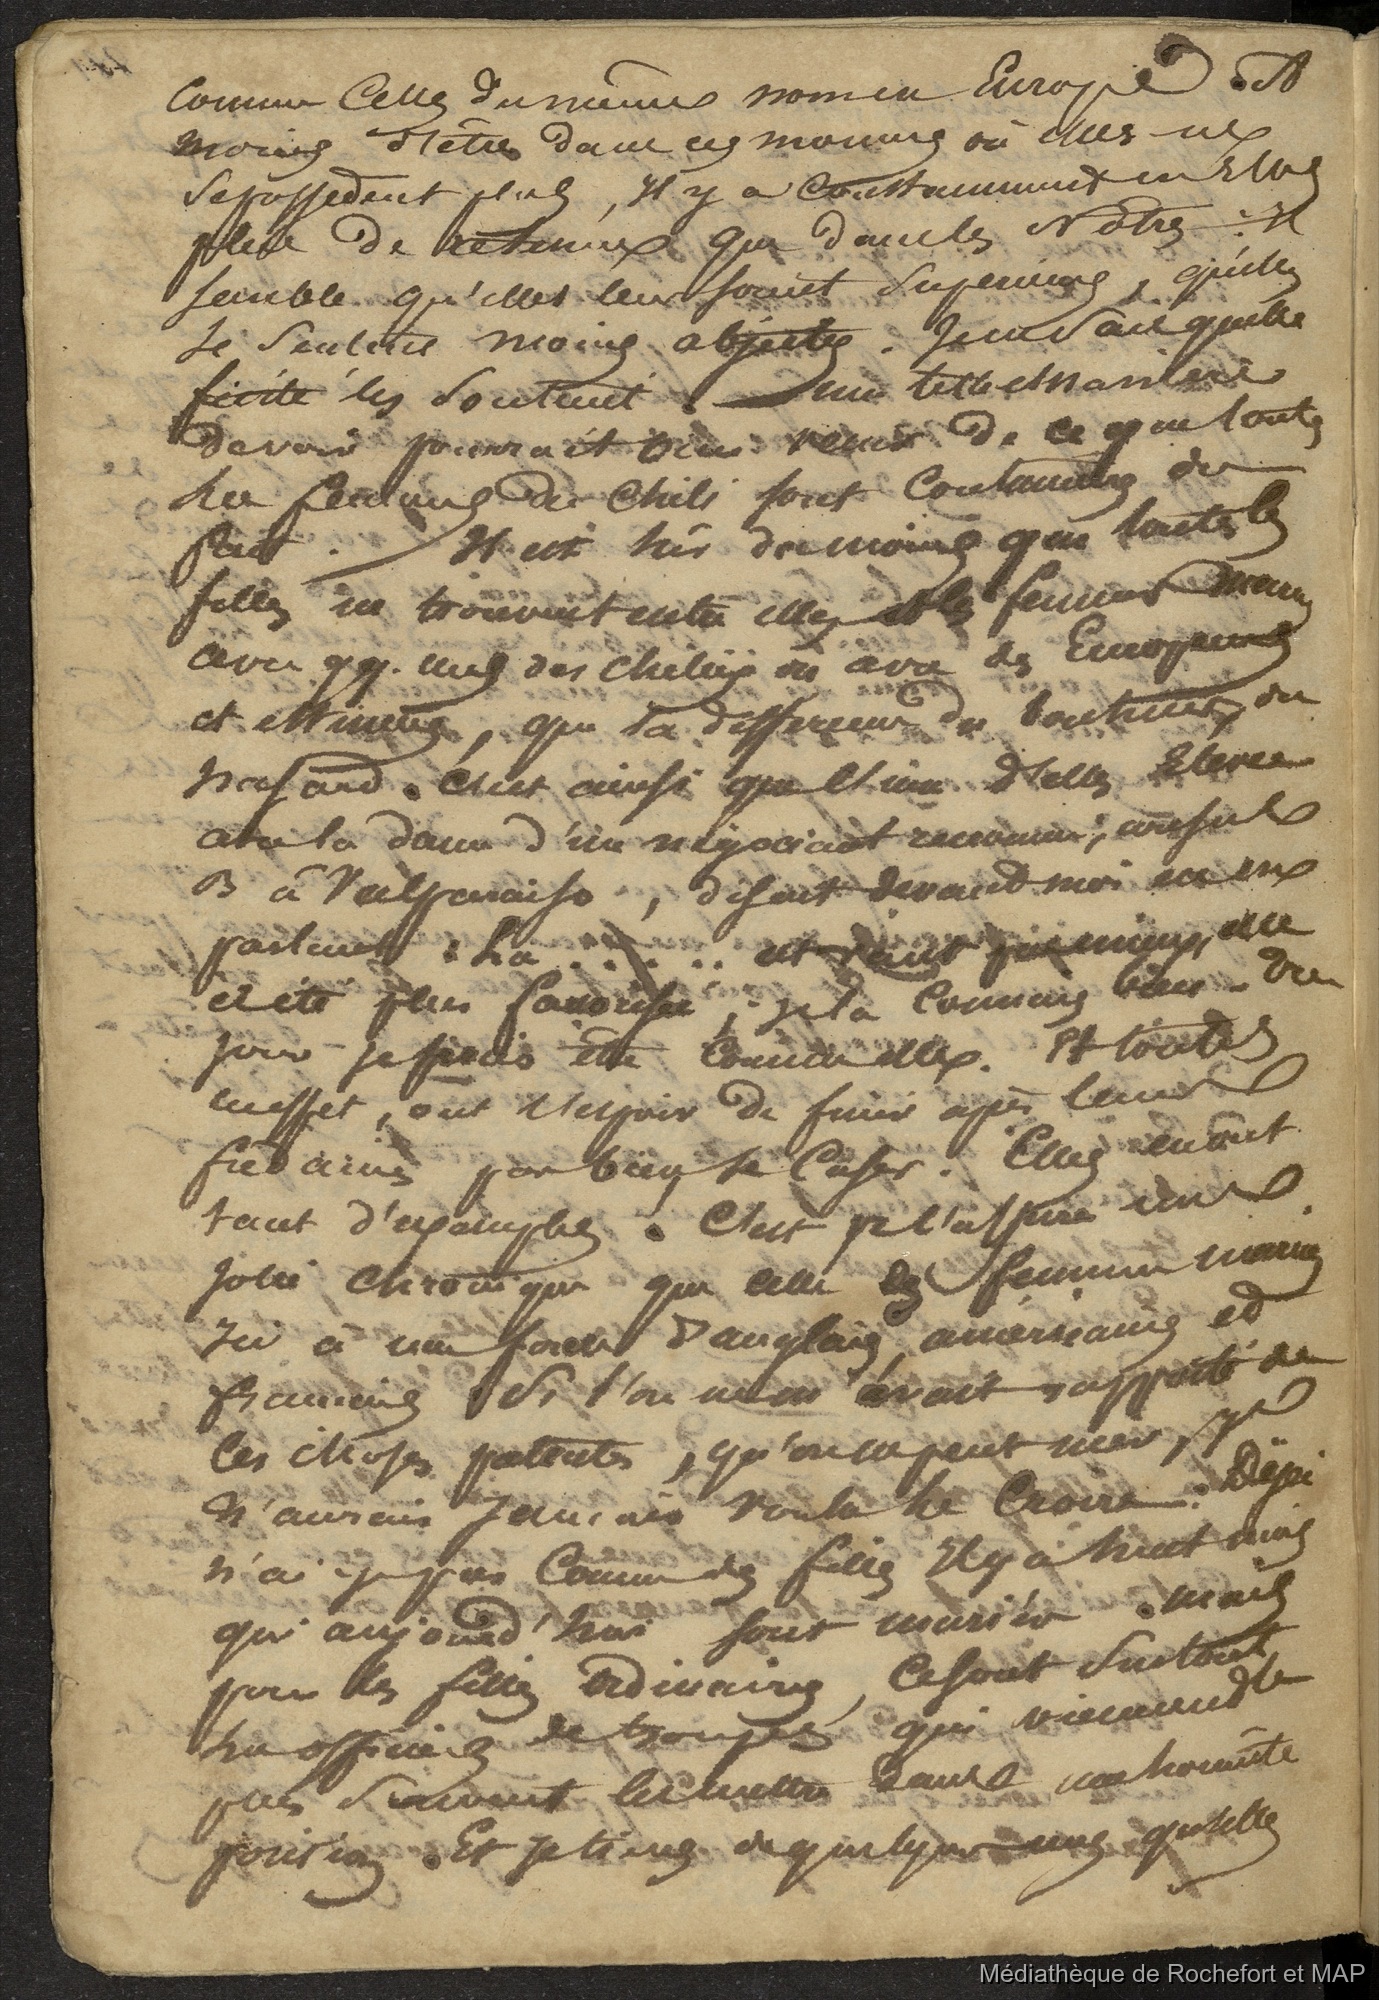 Comme Celles du même nom en Europe. A
moins d'être dans ces momens où elles ne
se possedent plus, Il y a Constamment en Elles
plus de retenue que dans les Nôtres. Il
semble qu'elles leur soient superieures, qu'elles
se sentent moins abjectes. Je ne sais quelle
fierté les soutient. une telle manière
devoir pourrait bien venir de ce que toutes
les femmes du Chili sont Coutumières du
fait. Il est sûr du moins que toutes les
filles ne trouvent entre elles et les femmes mariées
avec qq. uns des chiliens ou avec des Européens
et estimées, que la difference du bonheur, du
hasard. C'est ainsi que l'une d'elles Elevée
avec la dame d'un négociant renommé, consul
B à Valparaiso, disait devant moi en en
parlant : La ...... elle
a été plus favorisée, je la Connais bien. Un
jour je puis être Comme elle. Et toutes
en effet, ont l'espoir de finir après leurs
fredaines par bien se Caser. Elles en ont
tant d'exemples. C'est je l'assure une
jolie chronique que celle des femmes mariées
Ici à une foule d'anglais, américains et
français. Si l'on ne m'avait rapporté de
ces choses patentes, qu'on ne peut nier, je
n'aurais jamais voulu le Croire. Déjà
n'ai-je pas Connu des filles Il y a huit mois
qui aujourd'hui sont mariées. mais
pour les filles ordinaires, Ce sont surtout
les officiers de troupes qui viennent le
plus souvent les mettre dans une honnête
position. Et je tiens de quelques unes qu'elles